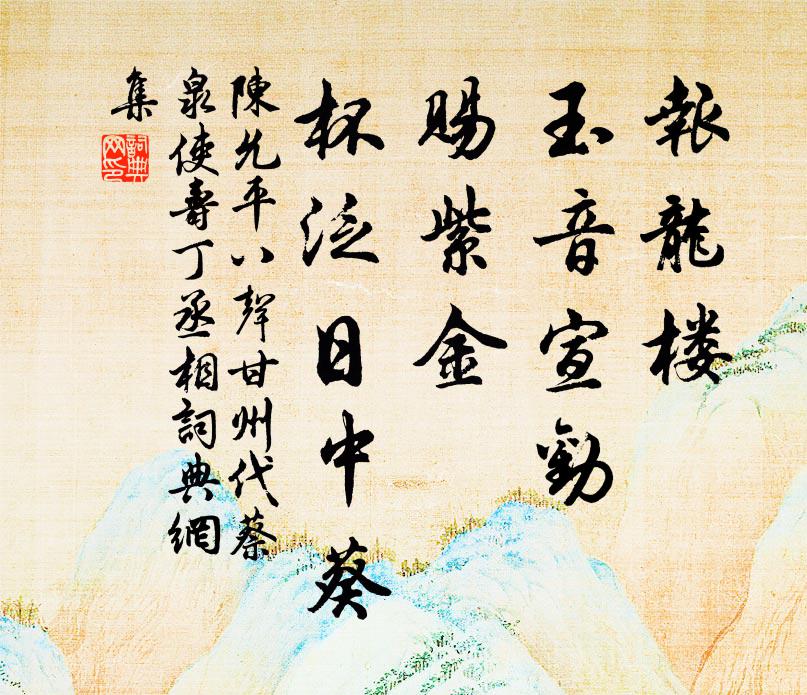 報龍楼
玉音宣勸
賜紫金
杯泛日中葵
陳允平八聲甘州代蔡
泉使壽丁丞相詞典網
集
詞典
网印